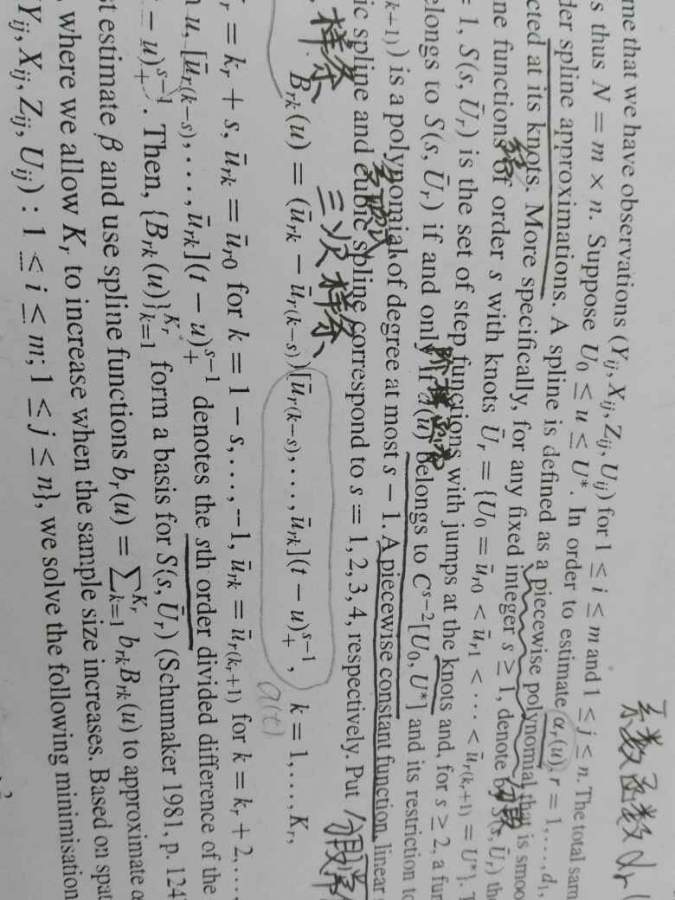 系数函数 αr(
me that we have observations (Yij, Xij, Zij, Uij) for 1 ≤ i ≤ m and 1 ≤ j ≤ n. The total sam
s thus N = m × n. Suppose U0 ≤ u ≤ U*. In order to estimate αr(u), r = 1, …, d1,
der spline approximations. A spline is defined as a piecewise polynomial that is smoo
分段
cted at its knots. More specifically, for any fixed integer s ≥ 1, denote by S(s, Ūr) the
结
ne functions of order s with knots Ūr = {U0 = ūr0 < ūr1 < ⋯ < ūr(kr+1) = U*}.
= 1, S(s, Ūr) is the set of step functions with jumps at the knots and, for s ≥ 2, a fun
elongs to S(s, Ūr) if and only if a(u) belongs to C^{s−2}[U0, U*] and its restriction to
k+1)) is a polynomial of degree at most s − 1. A piecewise constant function, linear
ic spline and cubic spline correspond to s = 1, 2, 3, 4, respectively. Put
样条
三次样条
分段常
Brk(u) = (ūrk − ūr(k−s))[ūr(k−s), …, ūrk](t − u)₊^{s−1}, k = 1, …, Kr,
a(t)
r = kr + s, ūrk = ūr0 for k = 1 − s, …, −1, ūrk = ūr(kr+1) for k = kr + 2, …
n u, [ūr(k−s), …, ūrk](t − u)₊^{s−1} denotes the sth order divided difference of the
− u)₊^{s−1}. Then, {Brk(u)}_{k=1}^{Kr} form a basis for S(s, Ūr) (Schumaker 1981, p. 124
st estimate β and use spline functions br(u) = ∑_{k=1}^{Kr} brkBrk(u) to approximate α
, where we allow Kr to increase when the sample size increases. Based on spat
Yij, Xij, Zij, Uij) : 1 ≤ i ≤ m; 1 ≤ j ≤ n}, we solve the following minimisation